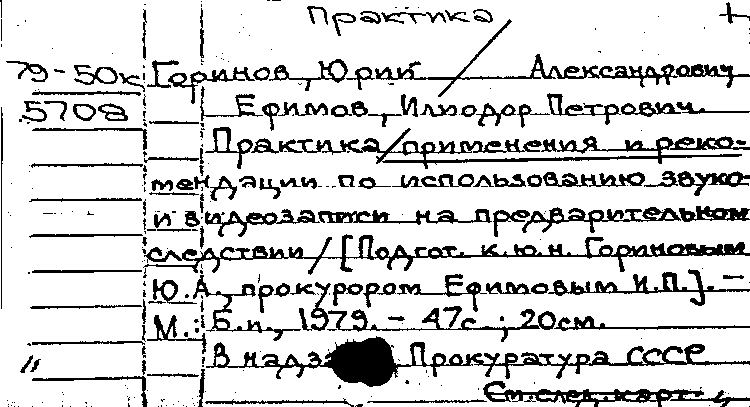 Практика +
79-50к Горинов, Юрий / Александрович
5708 Ефимов, Илиодор Петрович.
Практика/применения и реко-
мендации по использованию звуко-
и видеозаписи на предварительном
следствии / [Подгот. к.ю.н. Гориновым
Ю.А., прокурором Ефимовым И.П.]. -
М.: Б.и., 1979. - 47с.; 20см.
" В надз Прокуратура СССР
См.след.карт.